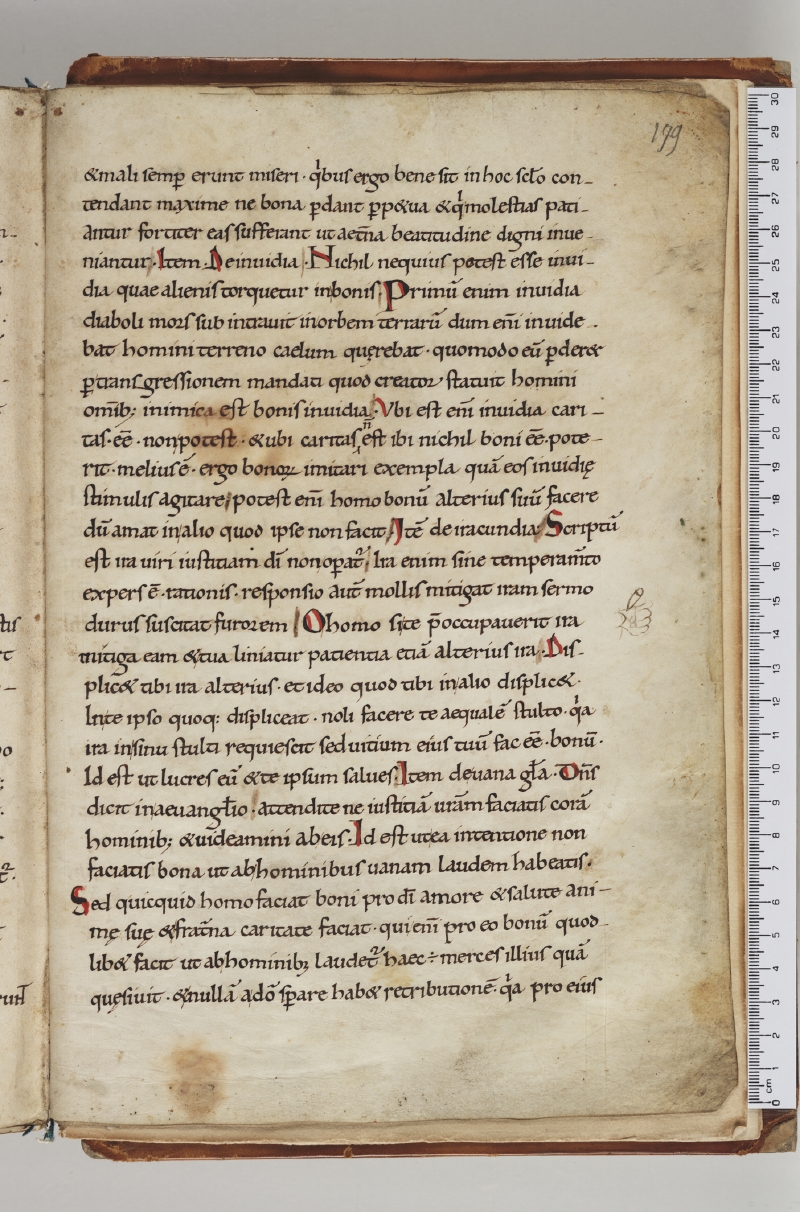 179
&mali semp̄ erunt miseri · q̇bus ergo bene sit in hoc sc̄lo con-
tendant maxime ne bona p̱dant p̱p&ua &q̇ molestias pati-
antur fortiter eas sufferant ut aet̄na beatitudine digni inue-
niantur. Item. De inuidia. Nichil nequius potest esse inui-
dia quae alienis torquetur in bonis. Primū enim inuidia
diaboli mors subintrauit in orbem terrarū dum eni͞ inuide
bat homini terreno caelum quęrebat · quomodo eū p̱der&
p̱transgressionem mandati quod creator statuit homini
om̄ib; inimica est bonis inuidia. Vbi est eni͞ inuidia cari-
tas · ee͞ · non potest · &ubi caritas n̄ est ibi nichil boni ee͞. pote-
rit · melius ē · ergo bonoꝝ imitari exempla quā eos inuidię
stimulis agitare, potest eni͞ homo bonū alterius suū facere
dū amat in alio quod ipse non facit. Itē de iracundia. Scriptū
est ira uiri iustitiam dī non opat̄ʳ. Ira enim sine temperam̄to
expers ē · rationis · responsio aut̄ mollis mitigat iram sermo
durus suscitat furorem. O homo si te p̄occupauerit ira
mitiga eam &tua liniatur patientia etiā alterius ira. Dis-
plic& tibi ira alterius · et ideo quod tibi in alio displic& ·
In te ipso quoq; displiceat · noli facere te aequalē stulto · q̇a
ira in sinu stulti requiescit sed uitium eius tuū fac ee͞ · bonū ·
Id est ut lucres eū &te ipsum salues. Item de uana gl̄a · Dn̄s
dicit in aeuangl̄io · attendite ne iustitiā ur̄am faciatis corā
hominib; &uideamini ab eis. Id est ut ea intentione non
faciatis bona ut ab hominibus uanam laudem habeatis.
Sed quicquid homo faciat boni pro dī amore &salute ani-
mę suę &frat̄na caritate faciat · qui eni͞ pro eo bonū quod-
lib& facit ut ab hominib; laudet̄ʳ haec ÷ merces illius quā
quęsiuit · &nullā a dō sp̱are hab& retributionē · q̇a pro eius